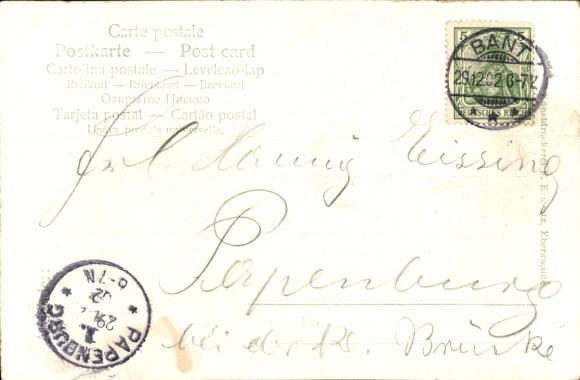 Carte postale
Postkarte — Post card
Cartolina postale — Levelező-lap
Brefkort — Briefkaart — Brevkort
Открытое Письмо
Tarjeta postal — Cartão postal
Union postale universelle.
5 5
BANT
29.12.02 6-7N
DEUTSCHES REICH
Eissing
Papenburg
bei der kl. Brücke
PAPENBURG
1.
29.
02
6-7N